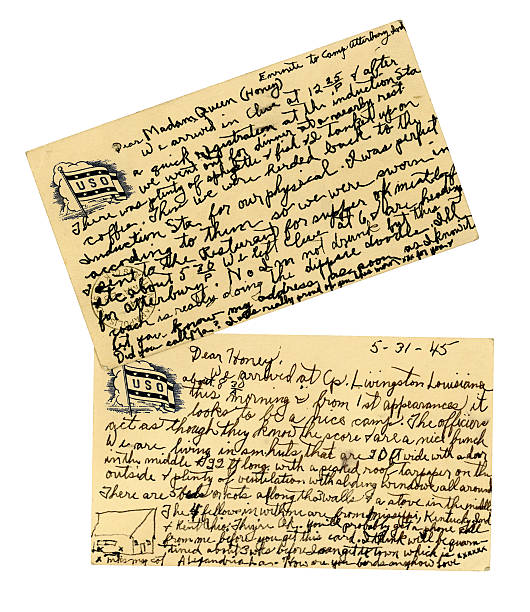 Enroute to Camp Atterbury Ind
Dear Madam Queen (Honey)
We arrived in Cleve at 12 25 P & after
a quick registration at the induction Sta
we went out for dinner to a nearby rest
There was plenty of spaghetti & fish & I tanked up on
coffee. Then we were herded back to the
Induction Sta. for our physical. I was perfect
according to them so we were sworn in
& sent to the Restaurant for supper of meatloaf
etc about 5 30 P We left Cleve at 6 & are heading
for atterbury. No I'm not drunk but this
coach is really doing the dipsie doodle. I'll
let you know my address as soon as I know it
Did you call Ma? I was really proud of you
USO
Dear Honey, 5-31-45
We arrived at Cp. Livingston Louisiana
about 8 30 this morning & from 1st appearances it
looks to be a nice camp. The officers
act as though they know the score & are a nice bunch
We are living in sm. huts that are 20 ft wide with a door
in the middle & 32 ft long with a peaked roof tarpaper on the
outside & plenty of ventilation with along windows all around
There are 5 beds or cots along the 3 walls & a stove in the middle
The 4 fellows in with me are from Mississippi, Kentucky, Ind
& Kent Ohio, They're OK. you'll probably get a phone call
from me before you get this card. I think we'll be quaran
tined about 3 wks before I can get to town which is
Alexandria La. How are you &
anyhow Love
x mks my cot
xxxxxx
USO